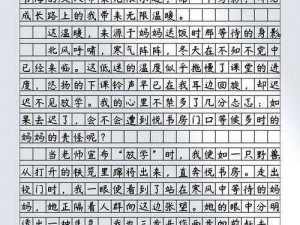 成长路上的我带来无限温暖。
这温暖,来源于妈妈送饭时那等待的身影。
北风呼啸,寒气阵阵,冬天在不知不觉中
已经来临。这低迷的温度似乎拖慢了课堂的进
度,悠扬的下课铃声早已在我耳边回荡,却迟
迟不见放学。我的心里不禁多了几分忐忑:如
果去迟了,会不会遭到悦书房门口等待多时的
妈妈的责怪呢?
当老师宣布“放学”时,我便如一只野兽
从打开的铁笼里蹿将出来,直奔悦书房。走出
校门时,我一眼便看到了站在寒风中等待的妈
妈,她正隔着人群向这边张望。她的眼睛分明